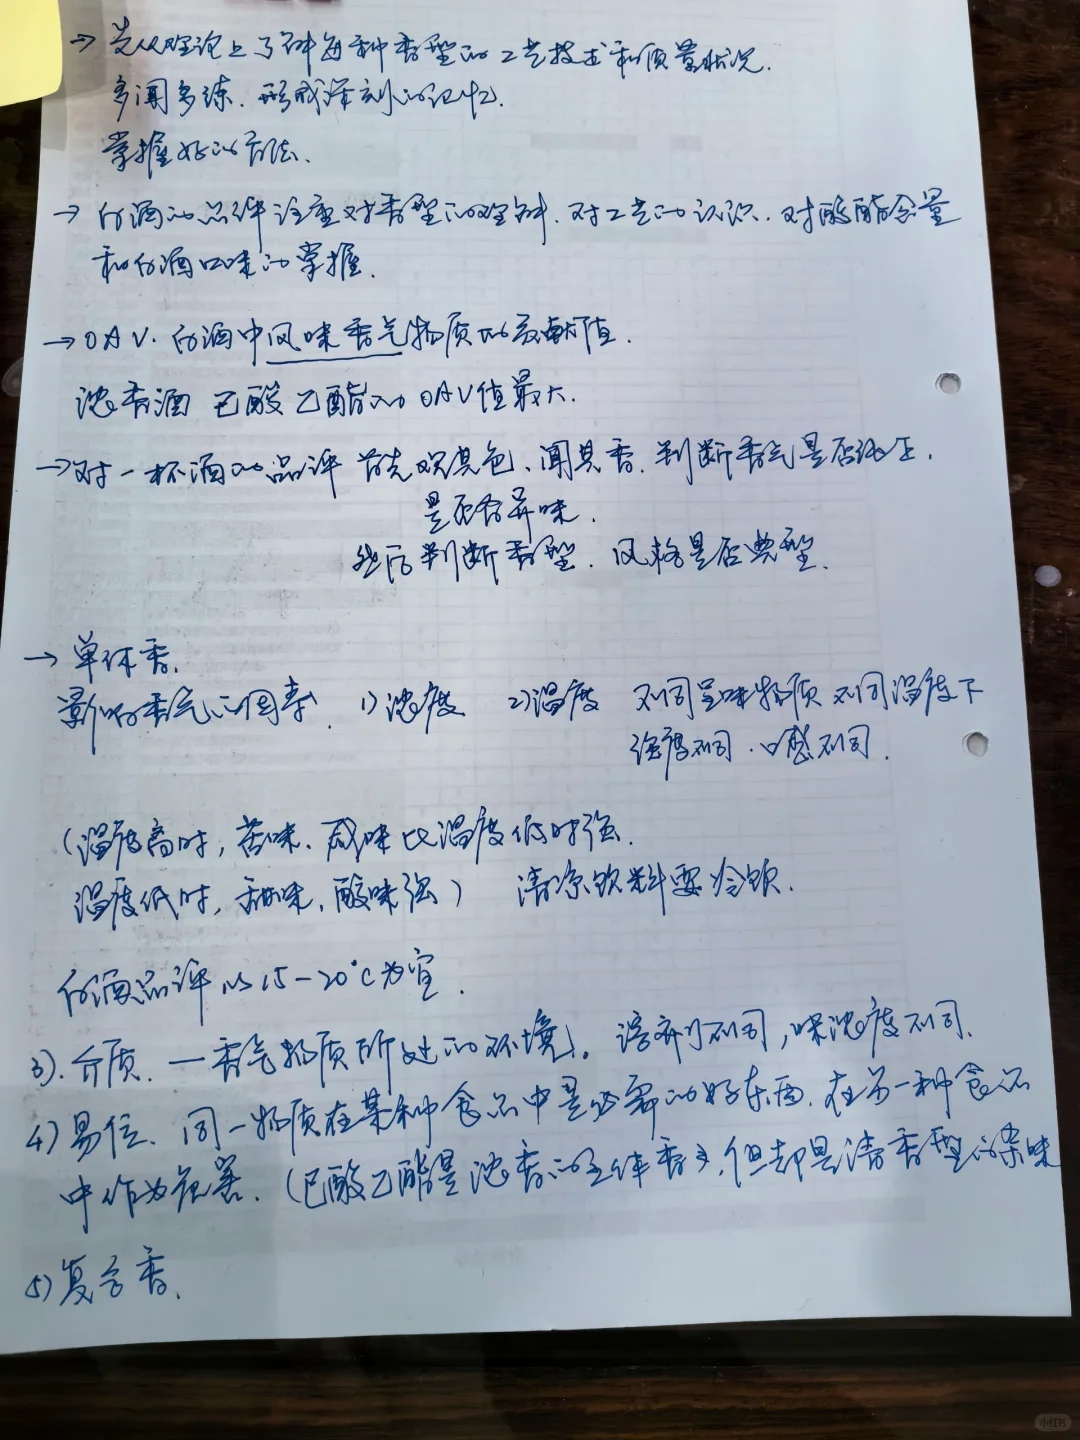 → 先从理论上了解每种香型的工艺技术和质量状况.
多闻多练. 形成深刻的记忆.
掌握好的方法.
→ 白酒的品评注重对香型的理解. 对工艺的认识. 对酸酯含量
和白酒口味的掌握.
→ OAV. 白酒中风味香气物质的贡献值.
浓香酒 己酸乙酯的OAV值最大.
→ 对一杯酒的品评 首先观其色、闻其香. 判断香气是否纯正.
是否有异味.
然后判断香型. 风格是否典型.
→ 单体香.
影响香气的因素. 1) 浓度 2) 温度 不同呈味物质 不同温度下
强度不同. 口感不同.
(温度高时, 苦味. 咸味比温度低时强.
温度低时, 甜味. 酸味强) 清凉饮料要冷饮.
白酒品评以15-20℃为宜.
3). 介质. — 香气物质所处的环境. 溶剂不同, 味浓度不同.
4) 易位. 同一物质在某种食品中是必需的好东西. 在另一种食品
中作为危害. (己酸乙酯是浓香的主体香, 但却是清香型的杂味
5) 复合香.
小红书